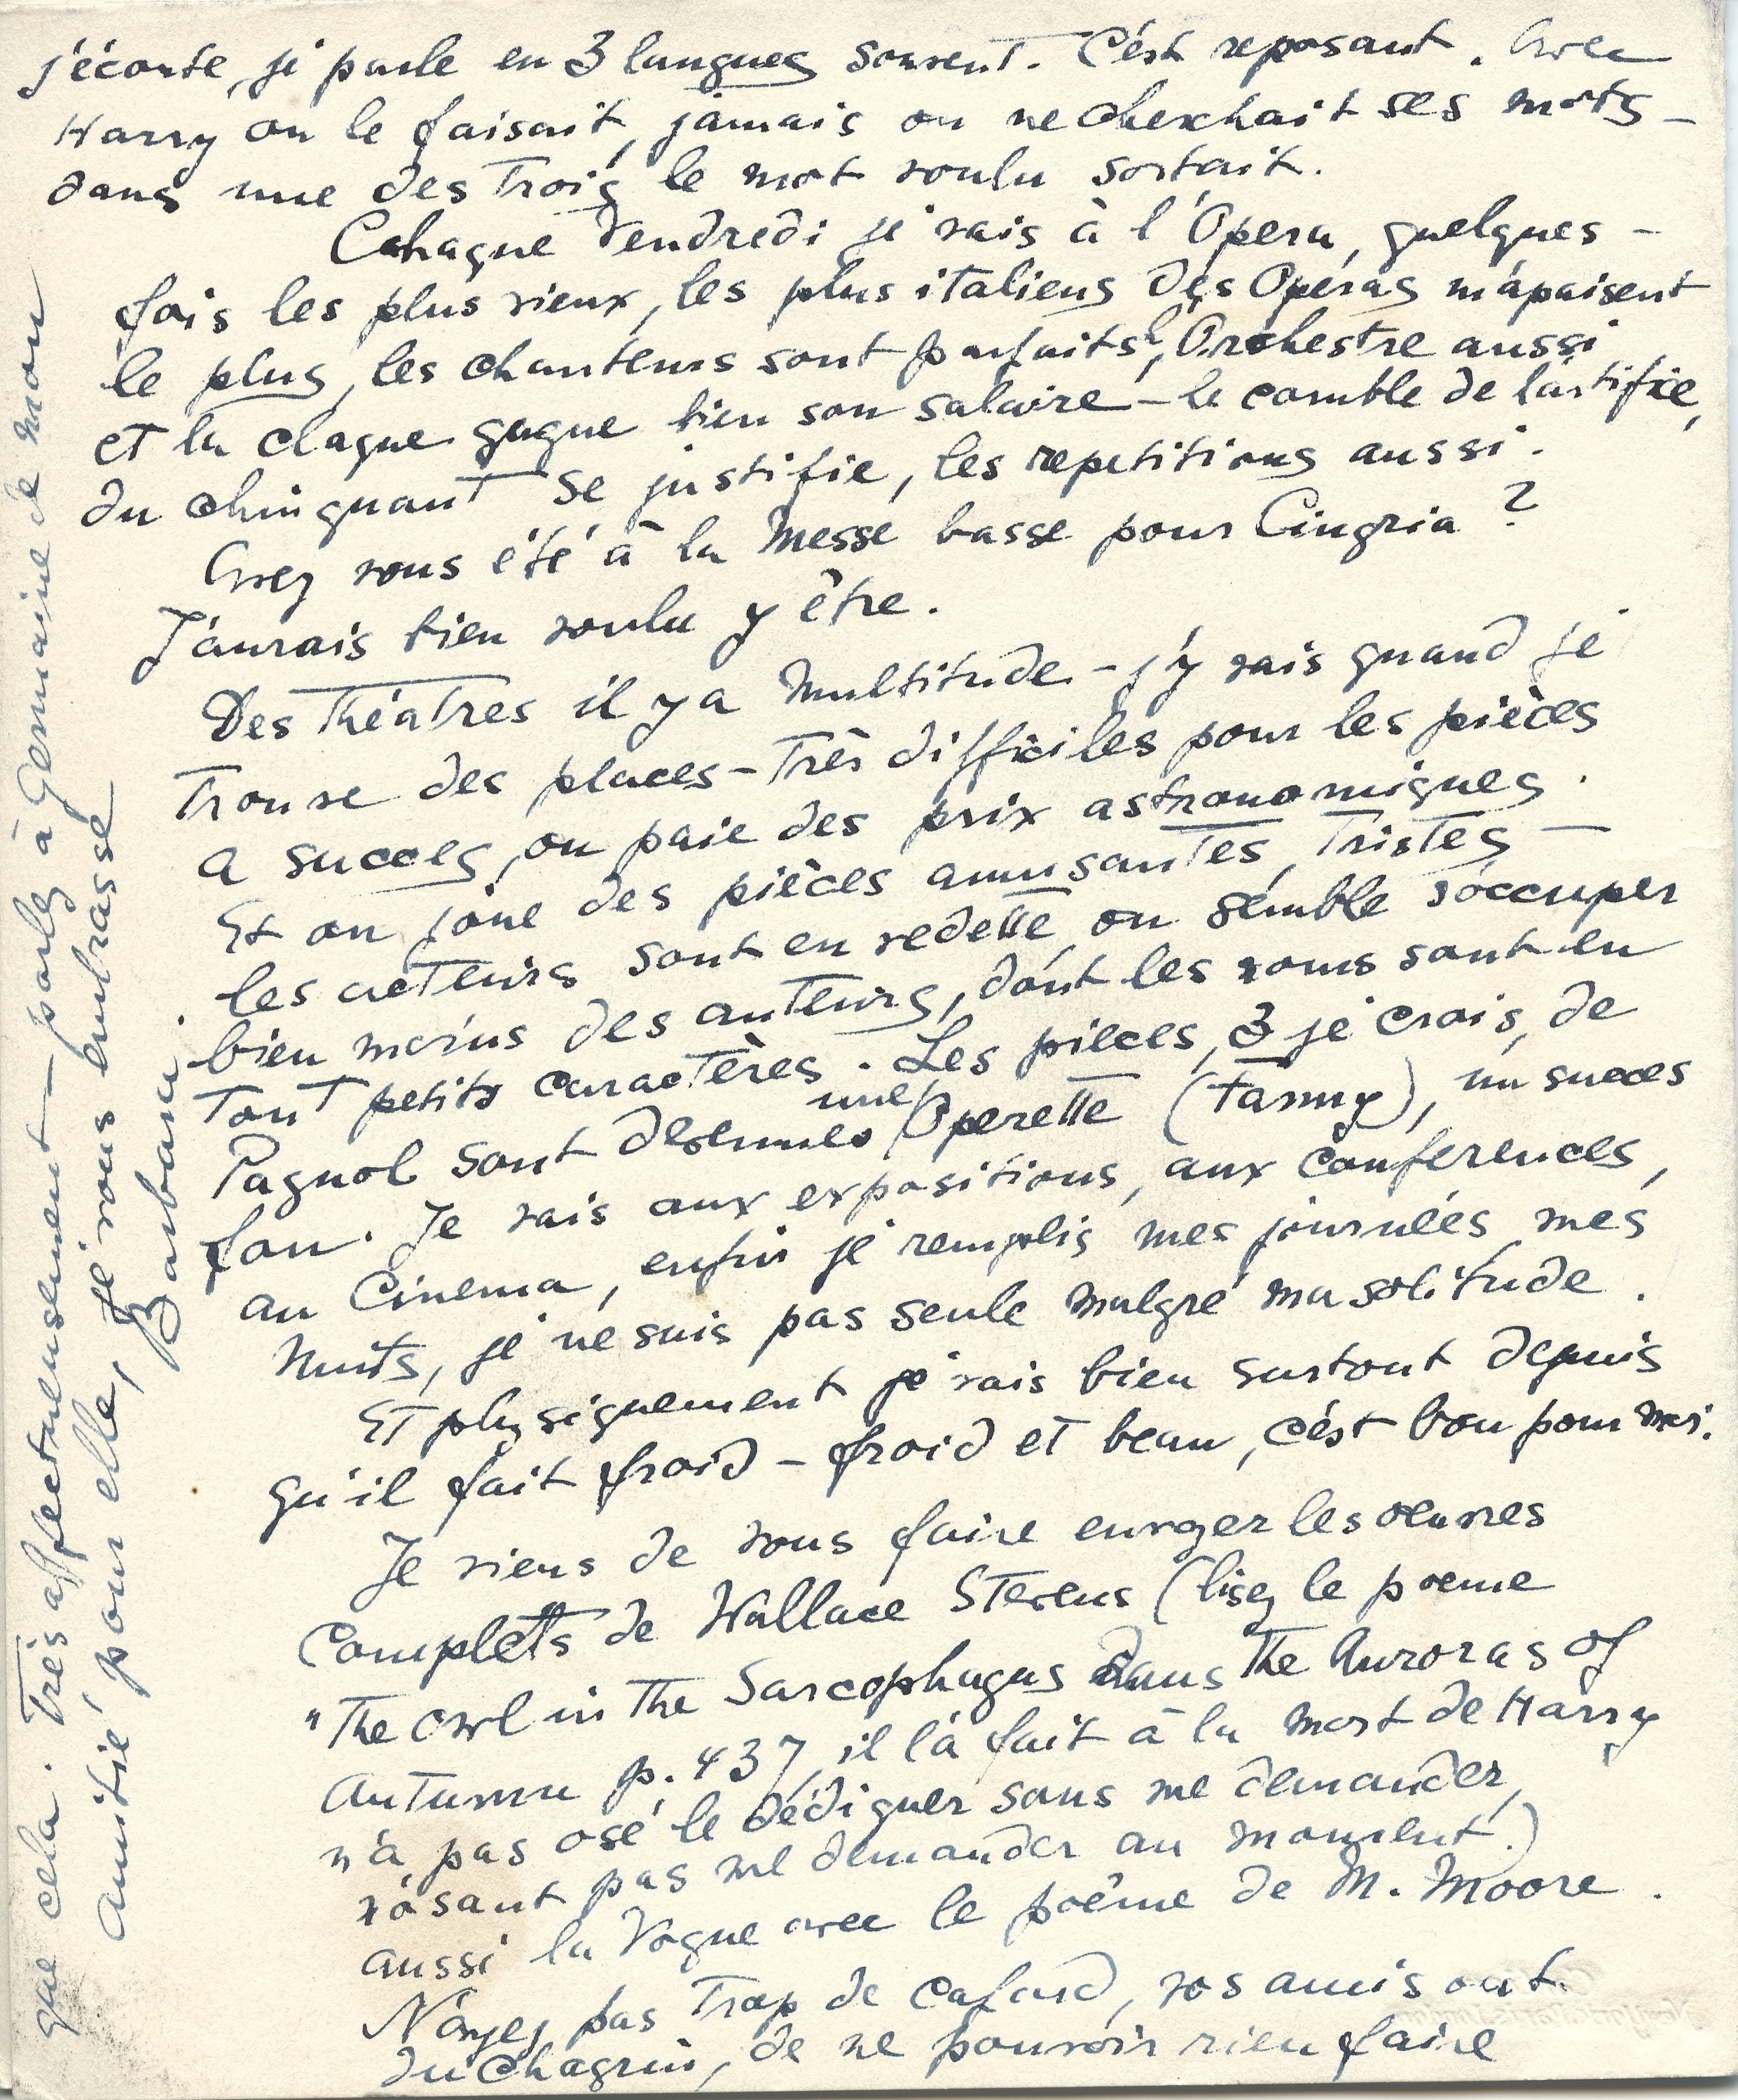 j'écoute, je parle en 3 langues souvent. C'est reposant. Avec
Harry on le faisait, jamais on ne cherchait ses mots –
dans une des trois le mot voulu sortait.
Chaque Vendredi je vais à l'Opera, quelques –
fois les plus vieux, les plus italiens des Opéras m'apaisent
le plus, les chanteurs sont parfaits, l'Orchestre aussi
et la claque gagne bien son salaire – le comble de l'artifice,
du clinquant se justifie, les repetitions aussi.
Avez vous été à la Messe basse pour Cingria ?
J'aurais bien voulu y être.
Des théatres il y a multitude – j'y vais quand je
trouve des places – très difficiles pour les pièces
a succes, on paie des prix astronomiques.
Et on joue des pièces amusantes, tristes –
les acteurs sont en vedette, on semble s'occuper
bien moins des auteurs, dont les noms sont en
tout petits caractères. Les pieces, 3 je crois, de
Pagnol sont devenues une Operette (Fanny), un succes
fou. Je vais aux expositions, aux conferences,
au Cinema, enfin je remplis mes journées mes
nuits, je ne suis pas seule malgré ma solitude.
Et physiquement je vais bien surtout depuis
qu'il fait froid – froid et beau, c'est bon pour moi.
Je viens de vous faire envoyer les oeuvres
Completts de Wallace Stevens (lisez le poeme
"The owl in the Sarcophagus dans The Auroras of
Autumn p. 437, il l'a fait à la mort de Harry
n'a pas osé le dédiquer sans me demander,
n'osant pas me demander au moment.)
aussi la Vogue avec le poême de M. Moore.
N'ayez pas trop de Cafard, vos amis ont
du chagrin, de ne pouvoir rien faire
que cela. Très affectueusement – parlez à Germaine de mon
amitié pour elle, je vous embrasse
Barbara.